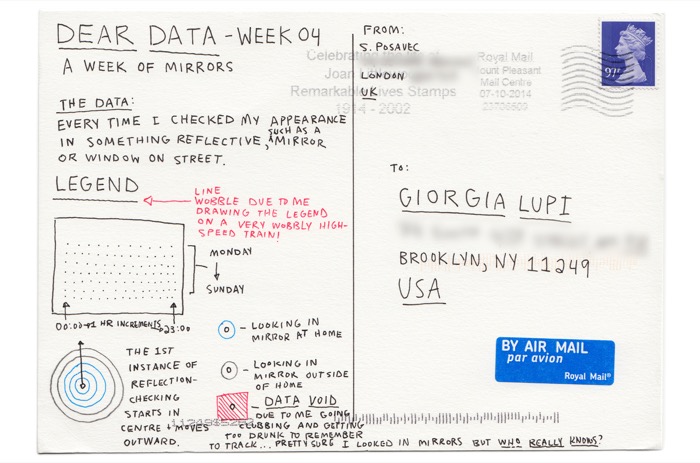 DEAR DATA - WEEK 04
A WEEK OF MIRRORS
THE DATA:
EVERY TIME I CHECKED MY APPEARANCE
IN SOMETHING REFLECTIVE, SUCH AS A MIRROR
OR WINDOW ON STREET.
LEGEND
LINE
WOBBLE DUE TO ME
DRAWING THE LEGEND
ON A VERY WOBBLY HIGH-
SPEED TRAIN!
MONDAY
SUNDAY
00:00 → 1 HR INCREMENTS → 23:00
THE 1ST
INSTANCE OF
REFLECTION-
CHECKING
STARTS IN
CENTRE + MOVES
OUTWARD.
- LOOKING IN
MIRROR AT HOME
- LOOKING IN
MIRROR OUTSIDE
OF HOME
- DATA VOID
DUE TO ME GOING
CLUBBING AND GETTING
TOO DRUNK TO REMEMBER
TO TRACK... PRETTY SURE I LOOKED IN MIRRORS BUT WHO REALLY KNOWS?
FROM:
S. POSAVEC
LONDON
UK
Celebrating
Joan
Remarkable Lives Stamps
1914 - 2002
Royal Mail
Mount Pleasant
Mail Centre
07-10-2014
TO:
GIORGIA LUPI
BROOKLYN, NY 11249
USA
BY AIR MAIL
par avion
Royal Mail®